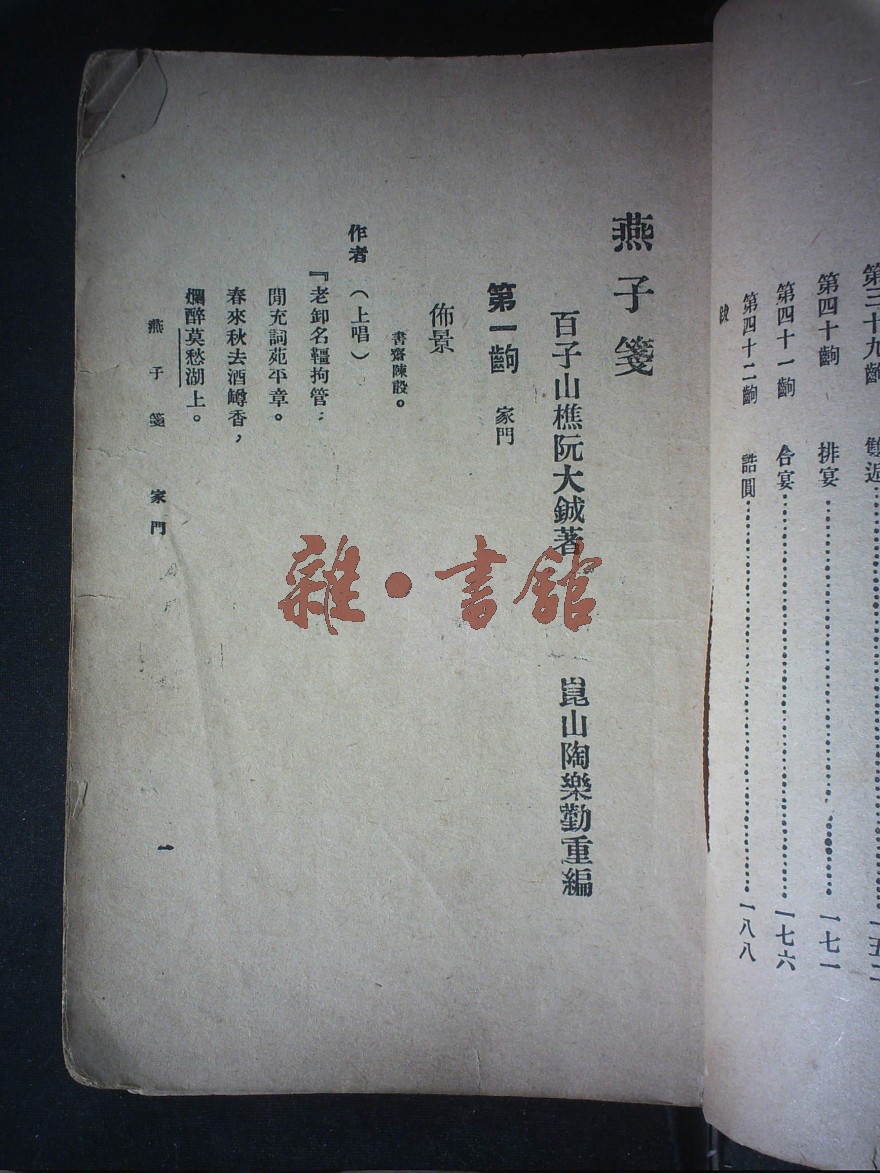 第三十九齣
第四十齣 排宴……一七一
第四十一齣 合宴……一七六
第四十二齣 誥圓……一八八
跋
燕子箋
百子山樵阮大鋮著 崑山陶樂勤重編
第一齣 家門
佈景
書齋陳設。
作者（上唱）
『老卸名韁拘管；
閒充詞苑平章。
春來秋去酒罇香，
爛醉莫愁湖上。
燕子箋 家門
一
雜·書館